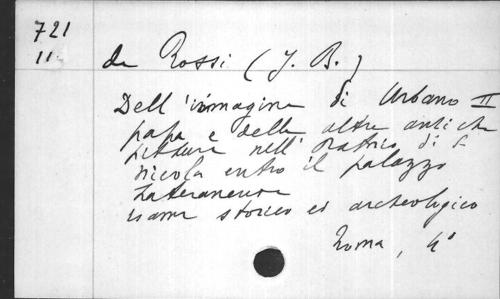 721
11.
de Rossi (J. B.)
Dell'immagine di Urbano II
papa e delle altre antiche
pitture nell'oratorio di S.
Nicola entro il palazzo
Lateranense
esame storico ed archeologico
Roma, 4°